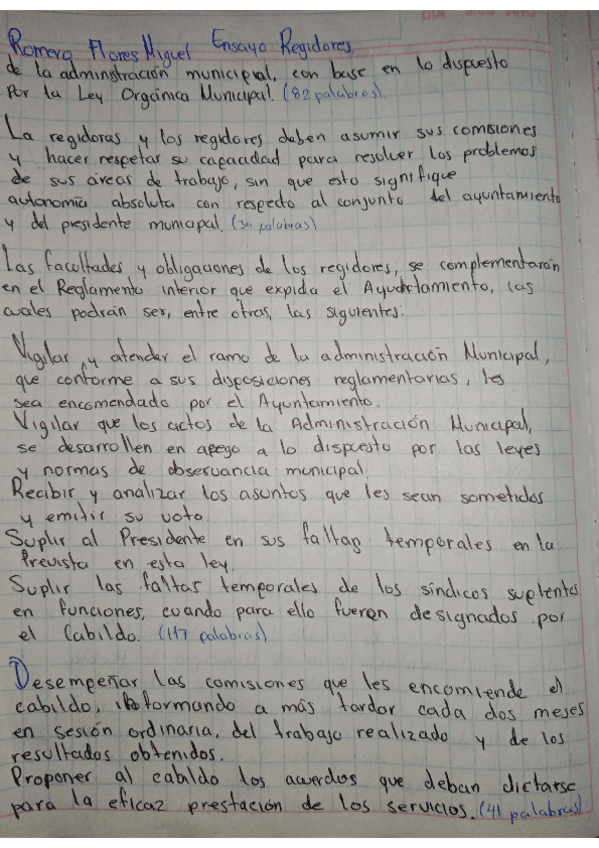 Romero Flores Miguel Ensayo Regidores.
de la adminstración municipal, con base en lo dispuesto
Por la Ley Orgánica Municipal. (82 palabras)
La regidoras y los regidores deben asumir sus comisiones
y hacer respetar su capacidad para resolver los problemas
de sus áreas de trabajo, sin que esto signifique
autonomía absoluta con respecto al conjunto del ayuntamiento
y del presidente municipal. (39 palabras)
Las facultades y obligaciones de los regidores, se complementarán
en el Reglamento interior que expida el Ayuntamiento, las
cuales podrán ser, entre otras, las siguientes:
Vigilar y atender el ramo de la administración Municipal,
que conforme a sus disposiciones reglamentarias, les
sea encomendado por el Ayuntamiento.
Vigilar que los actos de la Administración Municipal,
se desarrollen en apego a lo dispuesto por las leyes
y normas de observancia municipal.
Recibir y analizar los asuntos que les sean sometidos
y emitir su voto.
Suplir al Presidente en sus faltas temporales en la
Prevista en esta ley.
Suplir las faltas temporales de los síndicos suplentes
en funciones, cuando para ello fueren designados por
el Cabildo. (117 palabras)
Desempeñar las comisiones que les encomiende el
cabildo, informando a más tardar cada dos meses
en sesión ordinaria, del trabajo realizado y de los
resultados obtenidos.
Proponer al cabildo los acuerdos que deban dictarse
para la eficaz prestación de los servicios. (41 palabras)